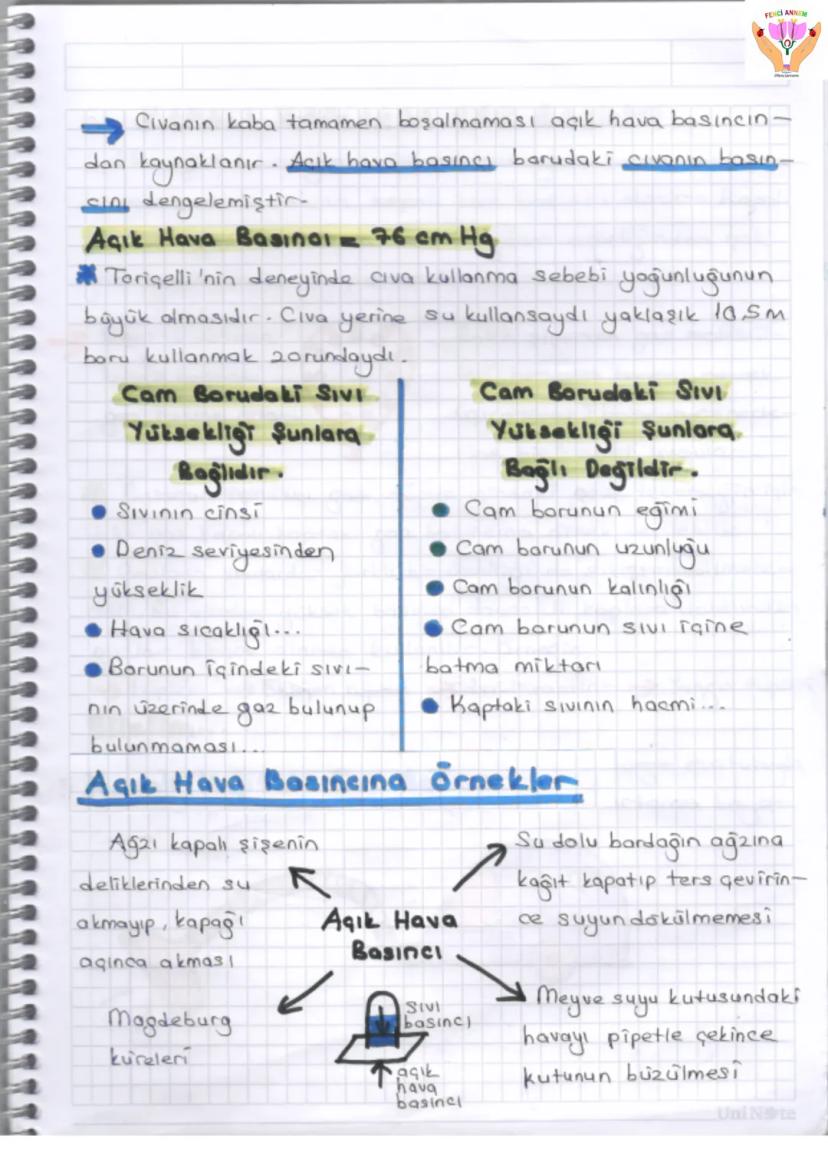 FENCİ ANNEM
→ Civanın kaba tamamen boşalmaması açık hava basıncın-
dan kaynaklanır. Açık hava basıncı borudaki civanın basın-
cını dengelemiştir.
Açık Hava Basıncı = 76 cm Hg
* Toriçelli'nin deneyinde cıva kullanma sebebi yoğunluğunun
büyük olmasıdır. Cıva yerine su kullansaydı yaklaşık 10,5m
boru kullanmak zorundaydı.
Cam Borudaki Sıvı
Yüksekliği Şunlara
Bağlıdır.
• Sıvının cinsi
• Deniz seviyesinden
yükseklik
• Hava sıcaklığı...
• Borunun içindeki sıvı-
nın üzerinde gaz bulunup
bulunmaması...
Cam Borudaki Sıvı
Yüksekliği Şunlara
Bağlı Değildir.
• Cam borunun eğimi
• Cam borunun uzunluğu
• Cam borunun kalınlığı
• Cam borunun sıvı içine
batma miktarı
• Kaptaki sıvının hacmi...
Açık Hava Basıncına Örnekler
Ağzı kapalı şişenin
deliklerinden su
akmayıp, kapağı
açınca akması
Su dolu bardağın ağzına
kağıt kapatıp ters çevirin-
ce suyun dökülmemesi
Açık Hava
Basıncı
Magdeburg
küreleri
sıvı
basıncı
açık
hava
basıncı
Meyve suyu kutusundaki
havayı pipetle çekince
kutunun büzülmesi
UniNote